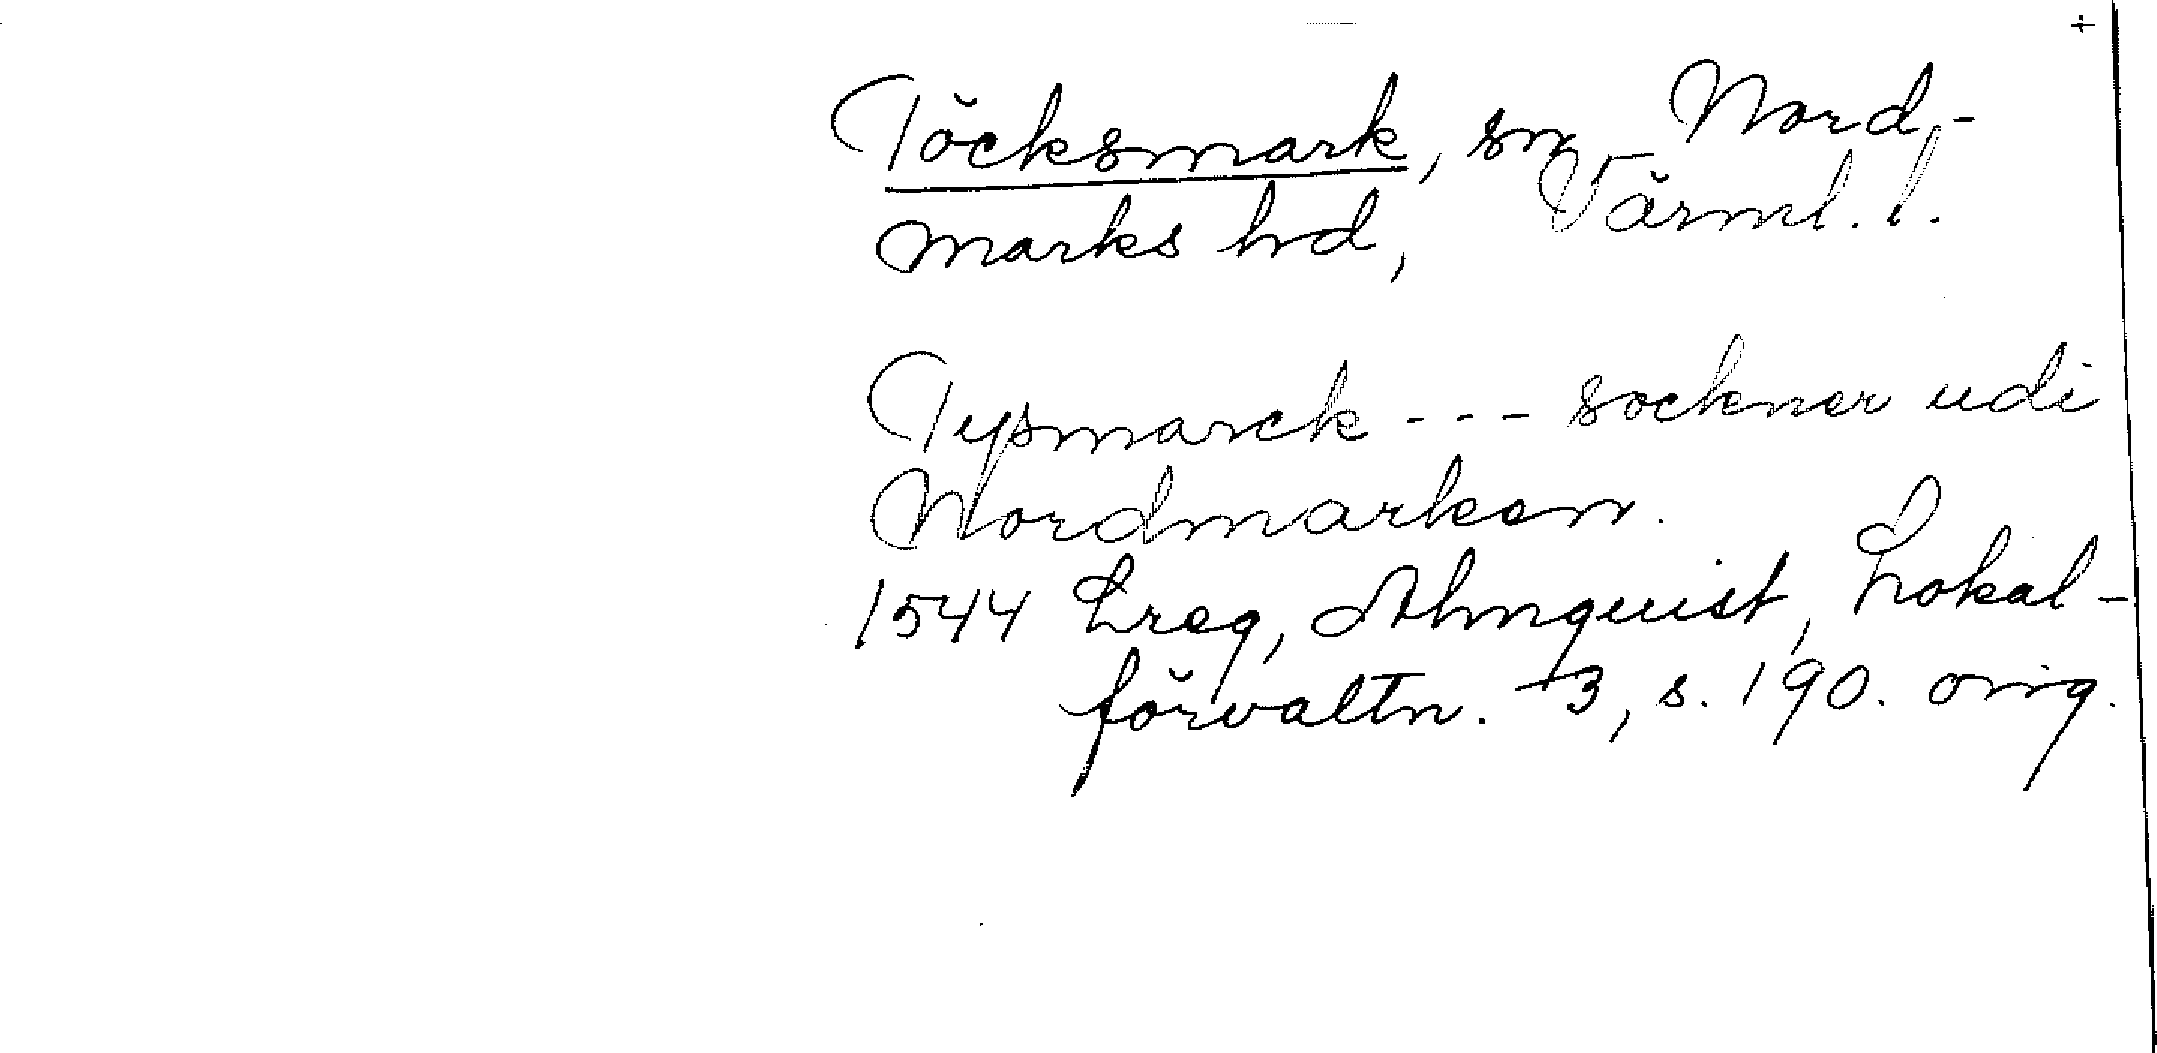 Töcksmark, sn Nord-
marks hd, Värml. l.
Tysmarck --- sockner udi
Nordmarken.
1544 Lreg, Almquist, Lokal-
förvaltn. 3, s. 190. orig.